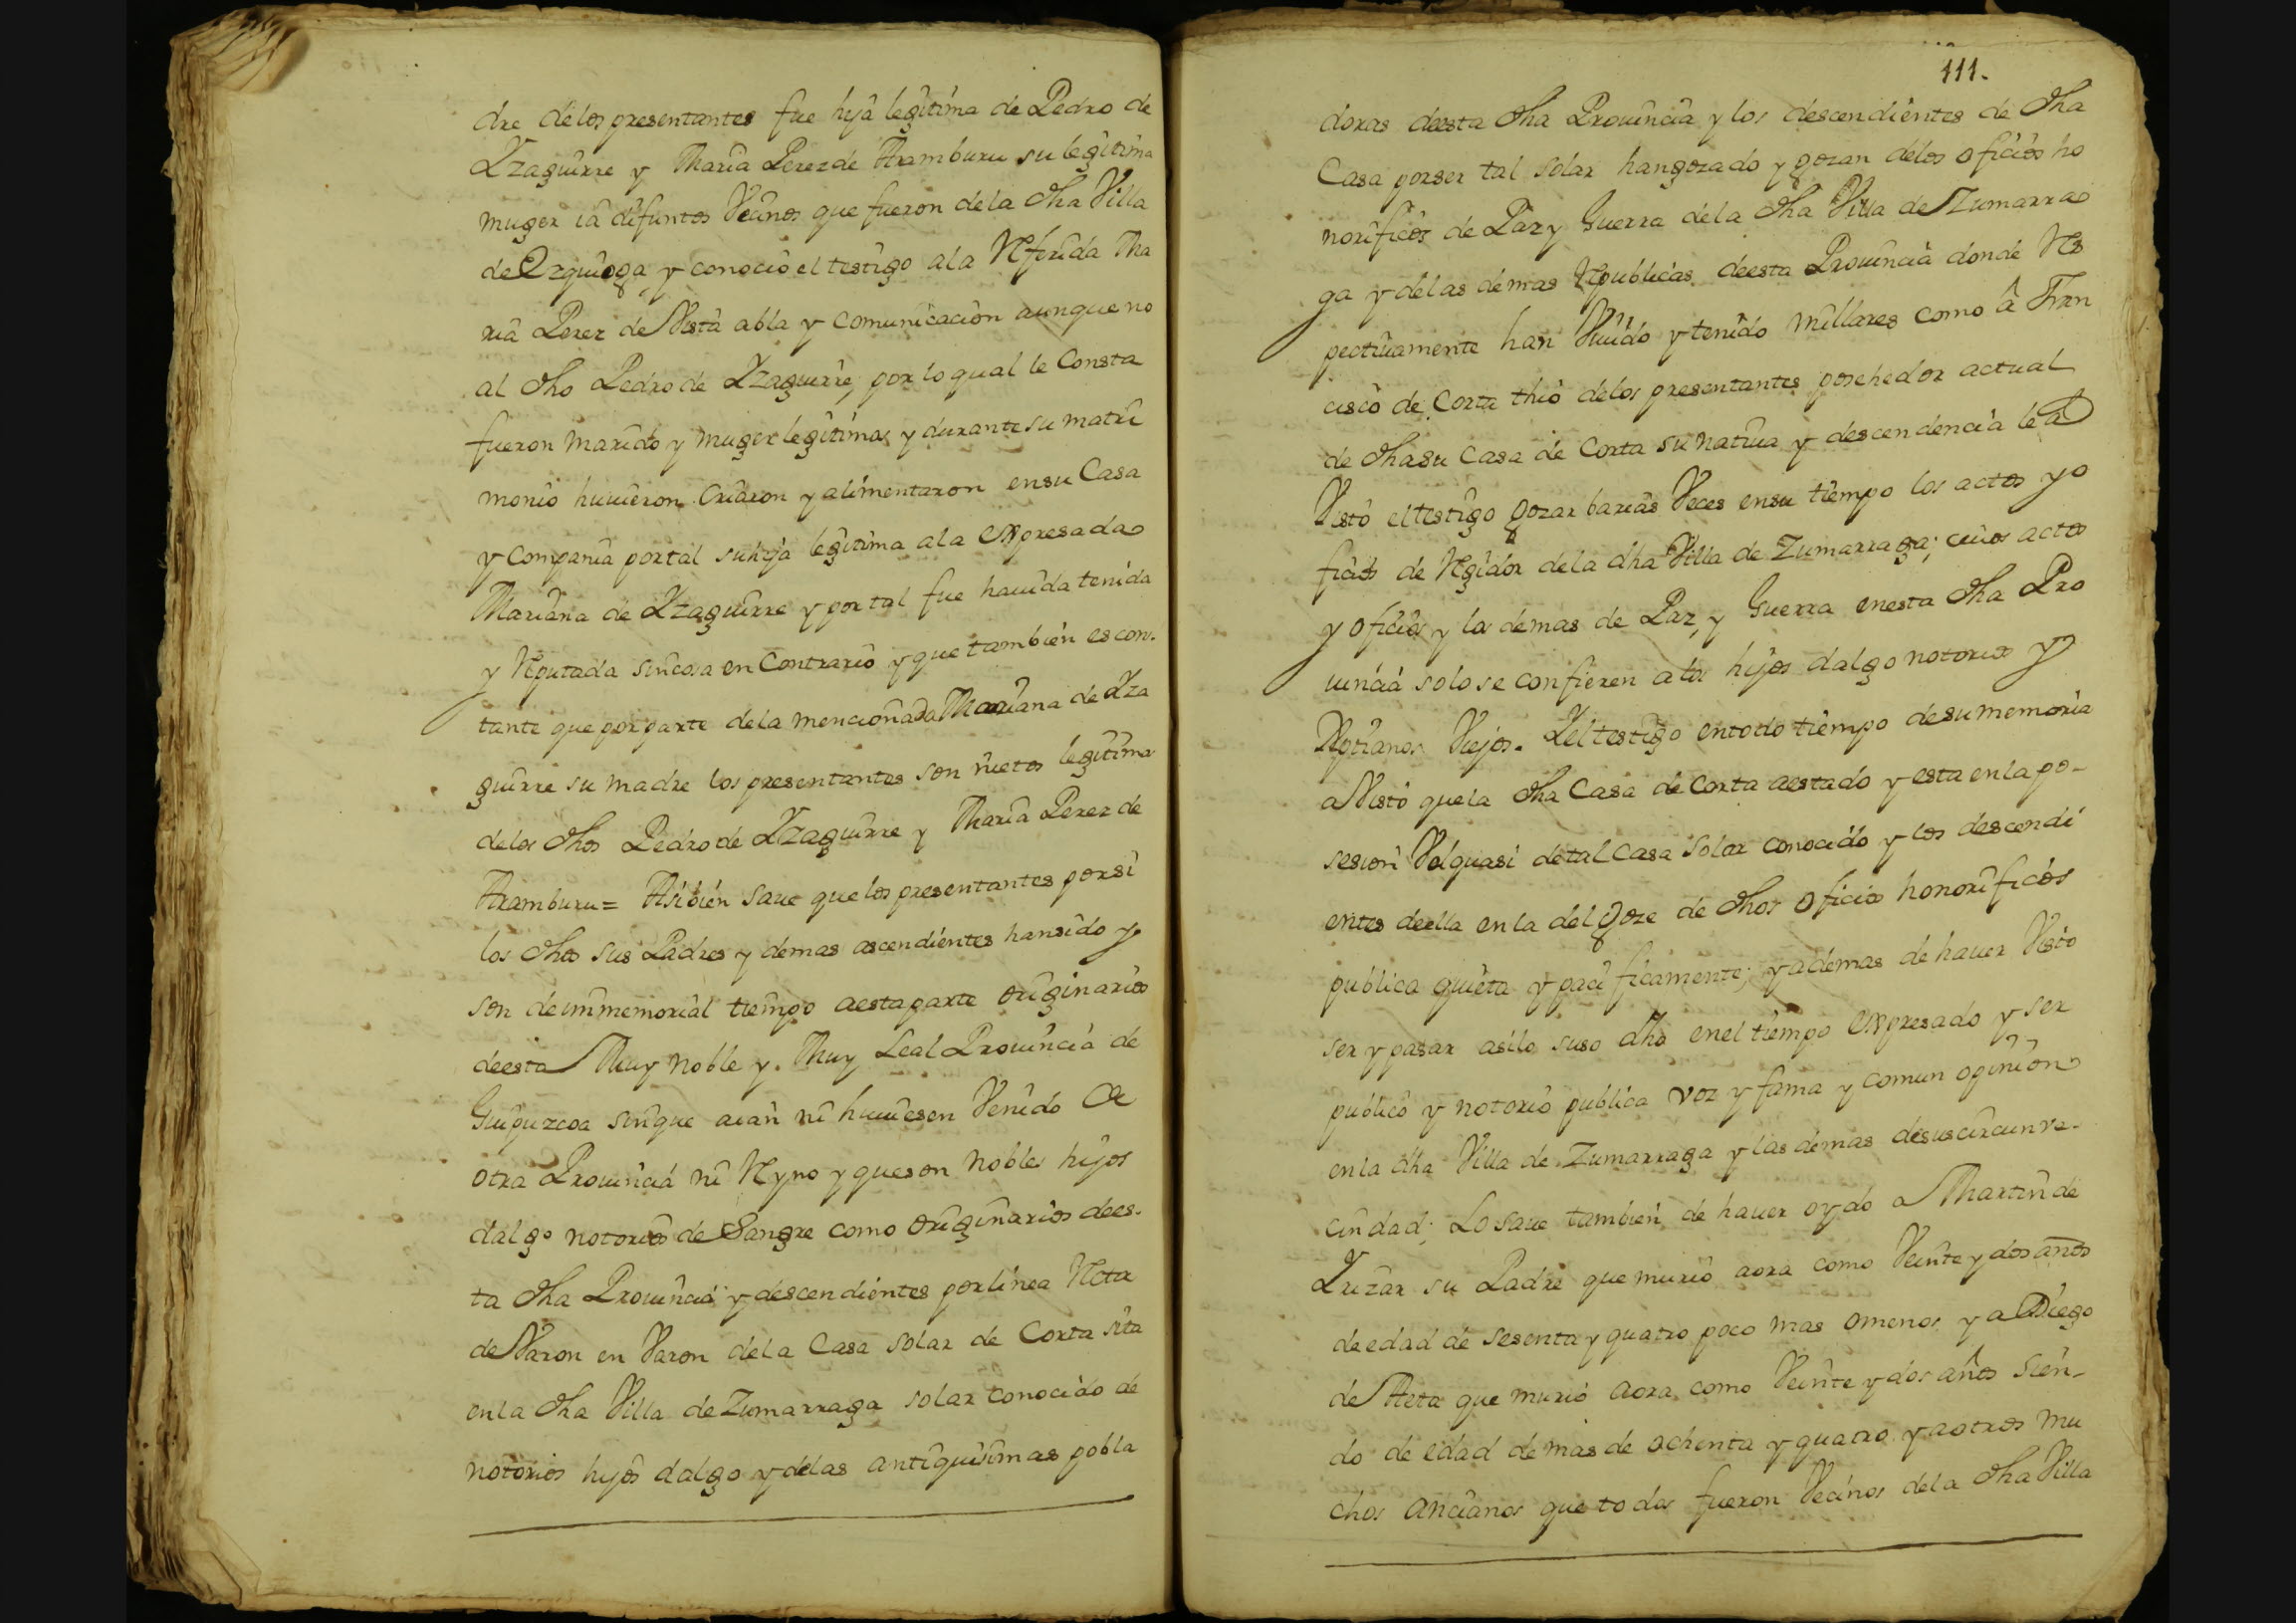 dre delos presentantes fue hija legitima de Pedro de
Yzaguirre y Maria Perez de Aramburu su legitima
muger ia difuntos Vecinos que fueron dela dha Villa
de Ezquioga y conocio el testigo ala Referida Ma
ria Perez de Vista abla y comunicacion aunque no
al dho Pedro de Yzaguirre, por lo qual le Consta
fueron marido y muger legitimos y durante su matri
monio huuieron Criaron y alimentaron en su Casa
y Compania por tal su hija legitima ala expresada
Mariana de Yzaguirre y por tal fue hauida tenida
y Reputada sin cosa en Contrario y que tambien es cons
tante que por parte dela mencionada Mariana de Yza
guirre su madre los presentantes son nietos legitimos
delos dhos Pedro de Yzaguirre y Maria Perez de
Aramburu = Asibien saue que los presentantes por si
los dhos sus Padres y demas ascendientes han sido y
son de immemorial tiempo aesta parte originarios
deesta Muy Noble y Muy Leal Prouincia de
Guipuzcoa sin que aian ni huuiesen Venido de
otra Prouincia ni Reyno y que son Nobles hijos
dalgo notorios de Sangre como originarios dees-
ta dha Prouincia y descendientes por linea Recta
de Varon en Varon dela Casa solar de Corta sita
enla dha Villa de Zumarraga solar conocido de
notorios hijos dalgo y delas antiquisimas pobla
111.
doras deesta dha Prouincia y los descendientes de dha
Casa por ser tal solar han gozado y gozan delos oficios ho
norificos de Paz y Guerra dela dha Villa de Zumarra
ga y delas demas Republicas deesta Prouincia donde Res
pectiuamente han Viuido y tenido millares como â Fran
cisco de Corta thio delos presentantes posehedor actual
de dha su Casa de Corta su natiua y descendencia le â
Visto el testigo gozar barias Veces en su tiempo los actos y o
ficios de Regidor dela dha Villa de Zumarraga; cuios actos
y oficios y los demas de Paz, y Guerra enesta dha Pro
uincia solo se confieren alos hijos dalgo notorios y
Xptianos Viejos. Y el testigo entodo tiempo de su memoria
a Visto que la dha Casa de Corta aestado y esta en la po-
sesion Vel quasi de tal casa solar conocido y los descendi
entes deella en la del goze de dhos oficios honorificos
publica quieta y pacificamente; y ademas de hauer Visto
ser y pasar asilo suso dho enel tiempo expresado y ser
publico y notorio publica voz y fama y comun opinion
enla dha Villa de Zumarraga y las demas desus circunve-
cindad; Lo saue tambien de hauer oydo a Martin de
Yrizar su Padre que murio aora como Veinte y dos años
deedad de sesenta y quatro poco mas omenos y a Diego
de Aeta que murio aora como Veinte y dos años sien-
do de edad de mas de ochenta y quatro y aotros mu
chos ancianos que todos fueron Vecinos dela dha Villa